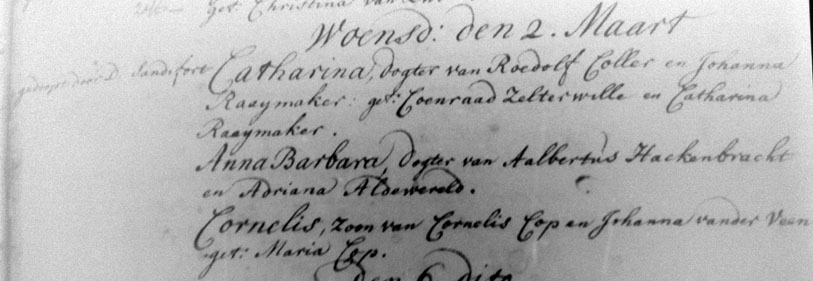 get: Christina van
Woensd: den 2. Maart
gedoopt door D Sandifort
Catharina, dogter van Roedolf Coller en Johanna
Raaymaker: get: Coenraad Zelterwille en Catharina
Raaymaker.
Anna Barbara, dogter van Aalbertus Hackenbracht
en Adriana Aldewereld.
Cornelis, zoon van Cornelis Cop en Johanna vander Veen
get: Maria Cop.
den 6 dito